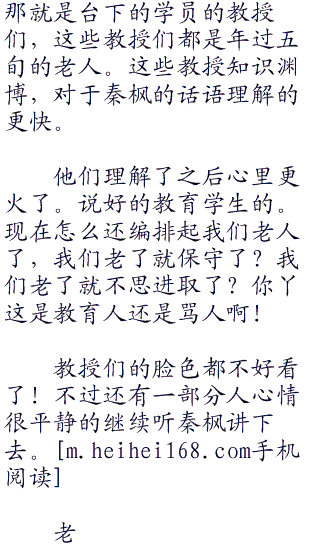 那就是台下的学员的教授
们，这些教授们都是年过五
旬的老人。这些教授知识渊
博，对于秦枫的话语理解的
更快。
他们理解了之后心里更
火了。说好的教育学生的。
现在怎么还编排起我们老人
了，我们老了就保守了？我
们老了就不思进取了？你丫
这是教育人还是骂人啊！
教授们的脸色都不好看
了！不过还有一部分人心情
很平静的继续听秦枫讲下
去。[m.heihei168.com手机
阅读]
老